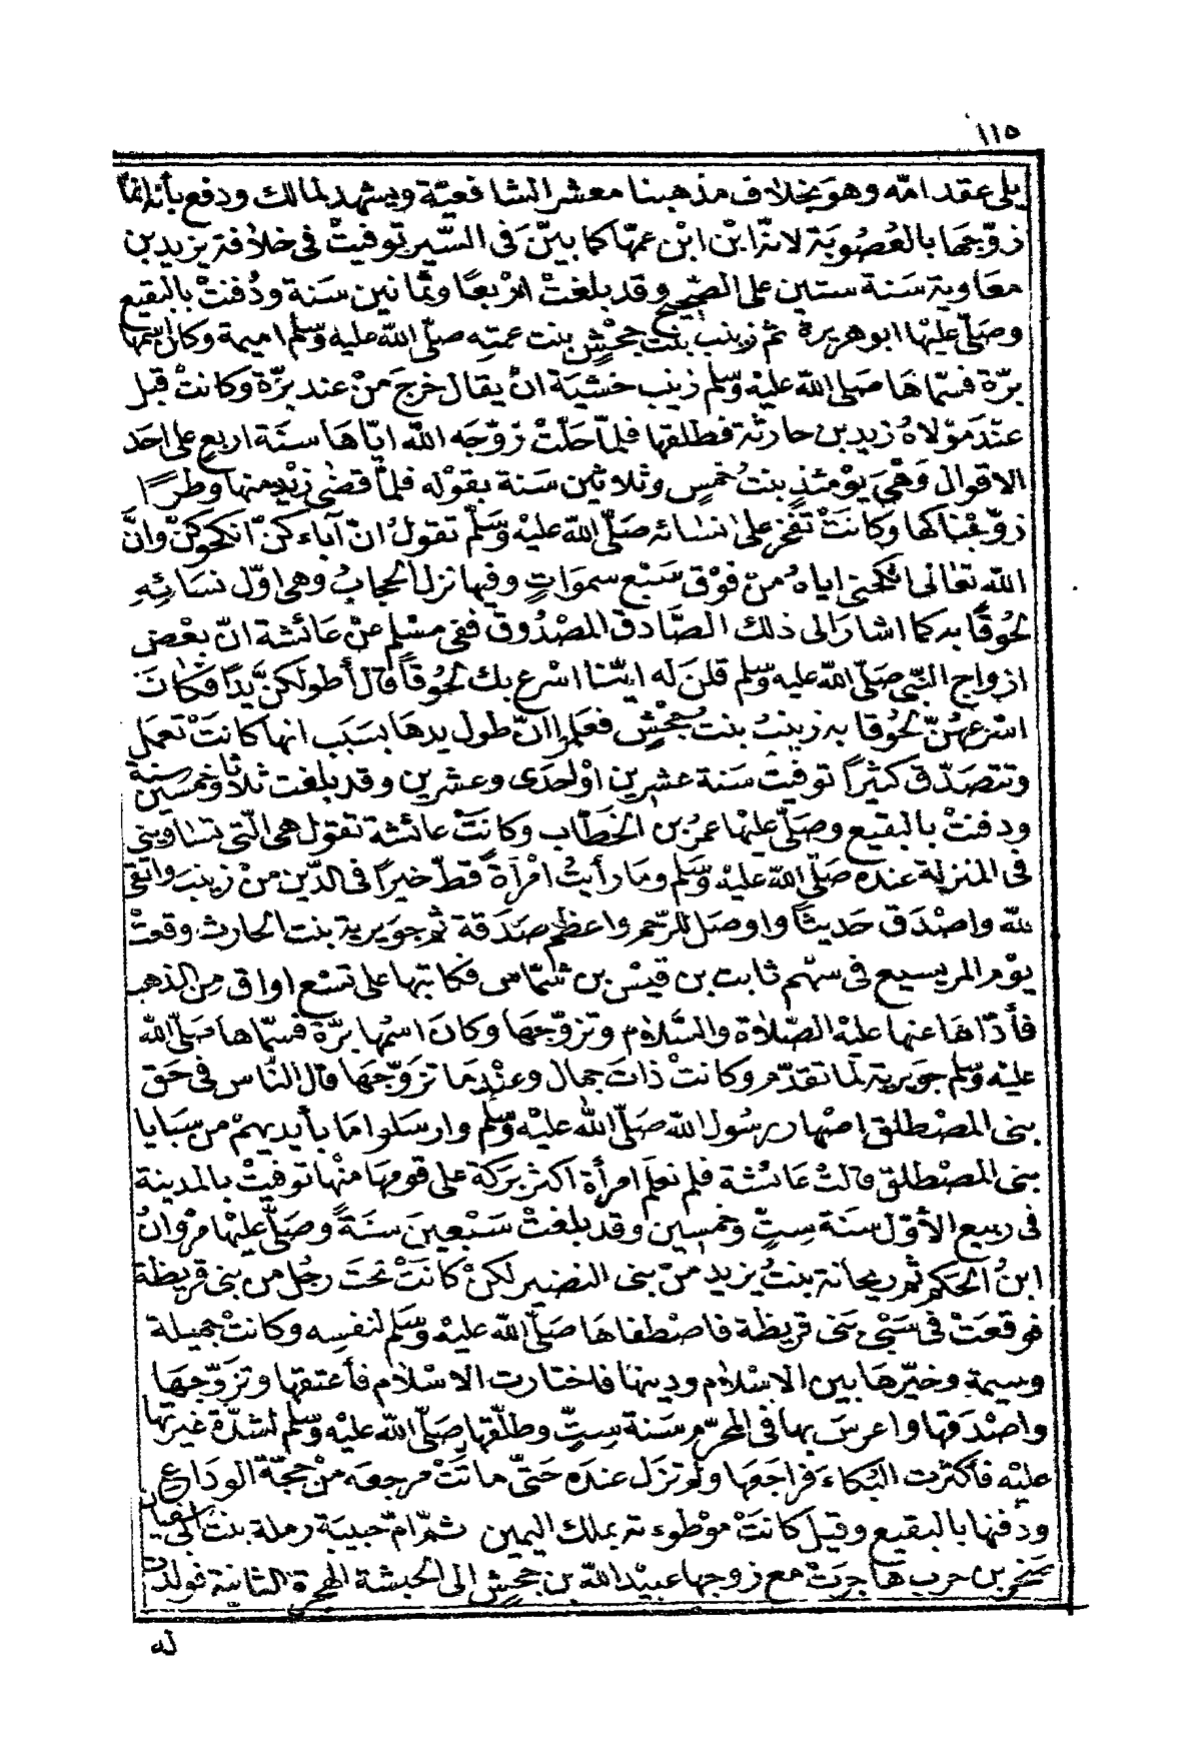 ١١٥
يلي عقد امّه وهوَ بخلاف مذهبنا معشر الشافعيّة ويشهد لمالك ودفع بأنه انما
زوّجهَا بالعُصُوبَة لانّه ابْن ابْن عمّها كما بيّنَ فى السّيَر توفيتْ فى خلافة يزيد بن
معَاوية سَنة ستين على الصّحِيح وقد بلغتْ ارْبعًا وثمانين سَنة ودُفنتْ بالبقيع
وصَلّى عليْها ابوهريرة ثم زينب بنت جحْشٍ بنت عمتِه صلّى الله عليه وسَلّم اميمة وكان اسْمها
برّة فسمّاهَا صَلى الله عليْه وسّلم زينب خشْيَة انْ يقال خرجَ منْ عند برّة وكانتْ قبل
عنْدَ موْلاهُ زيد بن حارثة فطلقها فلمّا حلّتْ زوّجَه الله ايّاهَا سنَة اربع على احَد
الاقوال وَهْيَ يوْمئذٍ بنتُ خمسٍ وثلاثين سَنة بقوْله فلمّا قضٰى زيْد منها وطرًا
زوّجْناكها وكانَتْ تفْخر علٰى نسَائه صَلّى الله عليْه وَسَلّم تقولُ انّ آباءكنّ انكحوكنّ وانّ
الله تعَالى انْكحَنى اياهُ منْ فوْق سَبْع سموَاتٍ وفيها نزل الحجابُ وهى اوّل نسَائِهِ
لحُوقًا به كما اشارَ الى ذلك الصَّادق المصْدُوق ففى مسْلم عنْ عَائشة انّ بعْض
ازواج النّبيّ صَلّى الله عليه وسّلم قلنَ له ايّنَا اسْرع بك لحُوقاً قال أطولكنّ يَدًا فكانَتَ
اسْرَعهُنّ لحُوقا به زينبُ بنت جحْشٍ فعَلمُوا انّ طول يدهَا بسَبَب انها كانَتْ تعمَل
وتتصَدّق كثيراً توفيتْ سَنة عشرين اوْ احْدَى وعشرين وقد بلغت ثلاثا وخمسين سنة
ودفنتْ بالبقيع وصَلّى عليْها عمرُ بن الخطّاب وكانَتْ عائشة تقول هى الّتى تسَاوينى
فى المنزلة عندهُ صَلّى الله عليْه وسّلم ومَا رأيتُ امْرَأةً قطّ خيراً فى الدّين منْ زينبَ واتقى
لله واصْدَق حَديثاً واوصَل للرّحم واعظَم صَدَقة ثم جوَيرية بنت الحارث وقعتْ
يوْم المريسيع فى سهْم ثابت بن قيْس بن شمّاس فكاتبها على تسْع اواق من الذهب
فأدّاهَا عنها عليْه الصّلاة والسَّلام وتزوّجهَا وكانَ اسْمُها برّة فسمّاها صَلى الله
عليْه وسَلم جويرية لما تقدّم وكانتْ ذاتَ جمال وعنْدمَا تزوّجهَا قال النّاس فى حَق
بنى المصْطلق اصْهار رسُول الله صَلّى الله عليْه وسّلم وارسَلوا مَا بأيديهمْ من سَبَايا
بنى المصْطلق قالتْ عائشة فلم نعلَم امرأة اكثر بَركة على قومهَا منْها توفيتْ بالمدينة
فى ربيع الأوّل سَنة سِتٍّ وخمسين وقد بلغتْ سَبْعينَ سَنَةً وصَلّى عليْها مرْوانُ
ابنُ الحكم ثم ريحانة بنتُ يزيد منْ بنى النضير لكنْ كانَتْ تحتَ رجُل من بنى قريظة
فوقعَتْ فى سَبْى بَنى قريظة فاصْطفاهَا صَلّى الله عليْه وسَلّم لنفسِه وكانتْ جميلة
وسيمة وخيّرهَا بين الاسْلام ودينها فاختارت الاسْلام فأعتقها وتزَوّجهَا
واصْدَقها واعرسَ بها فى المحرّم سَنة سِتٍّ وطلّقها صَلّى الله عليْه وسّلم لشدّة غيرتها
عليْه فأكثرت البُكاءَ فراجَعهَا ولم تزل عندَه حَتّى ماتَتْ مرجعه منْ حجّة الودَاع
ودفنها بالبقيع وقيل كانَتْ موْطوءته بملك اليمين ثمّ امّ حَبيبَة رملة بنت ابى سفيان
صَخر بن حرب هَاجرَتْ مع زوجها عبيْد الله بن جحْشٍ الى الحبشة الهجرة الثانية فولدت
له